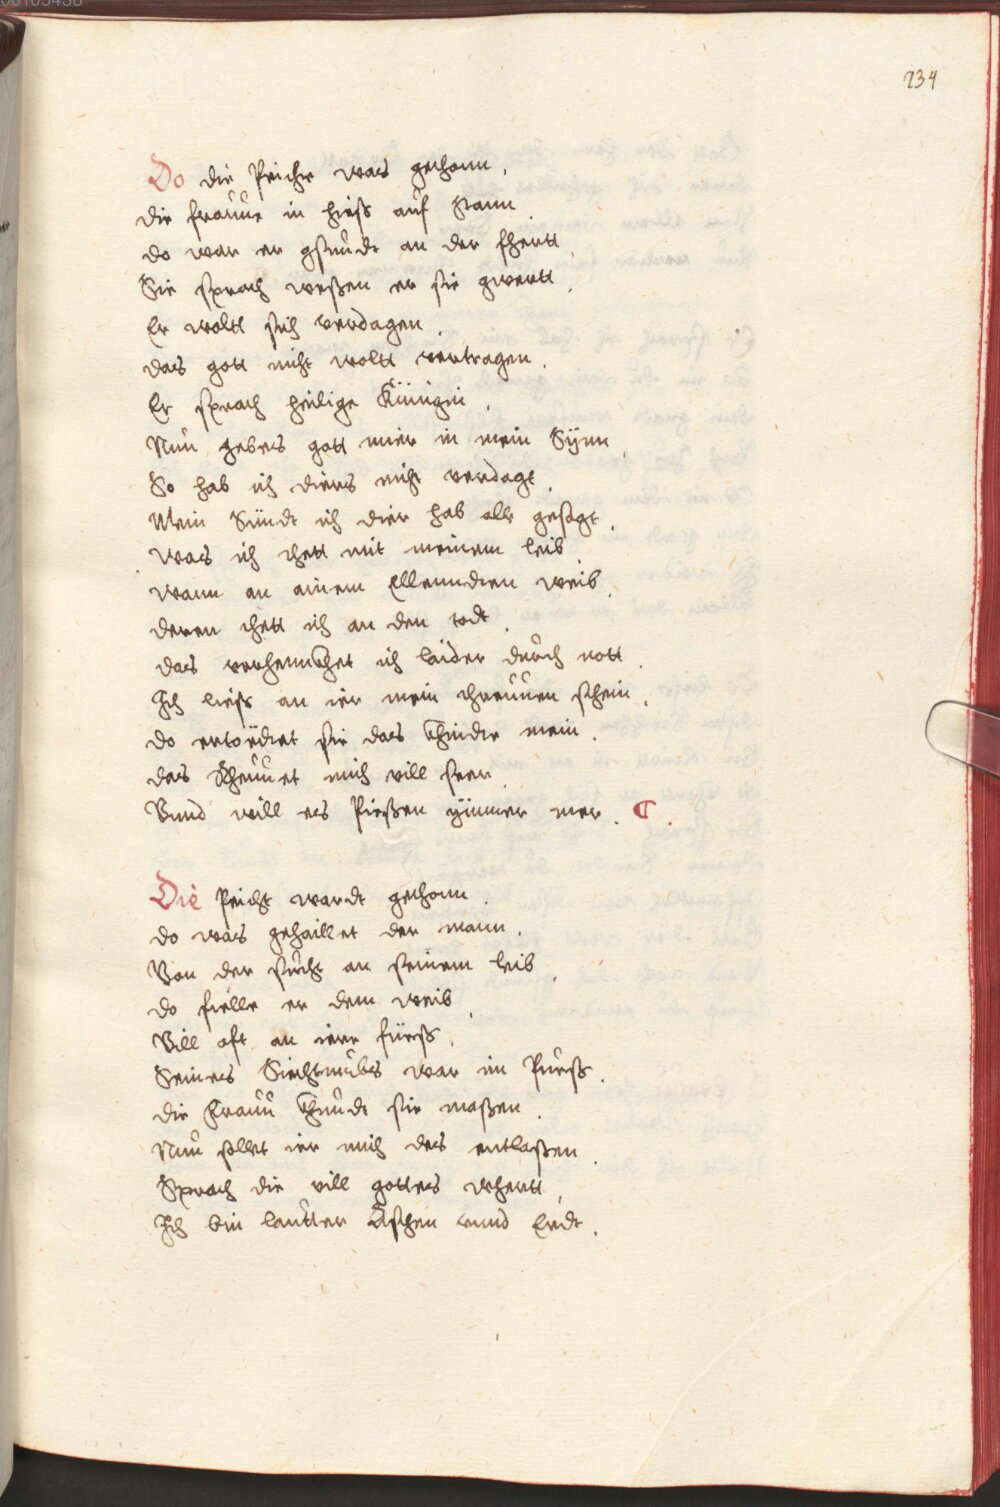 234
Do die Peicht was gethonn.
die frauue in hieß auf stann
do war er gsundt an der fhertt
Sie sprach weßen er sie gwertt.
Er woltt sich verdagen.
das gott nicht woltt vertragen.
Er sprach heilige Künigin.
Nun gebers gott mier in mein Synn
So hab ich diers nicht verdagt.
Mein Sündt ich dier hab alle gesagt.
was ich thett mit meinem leib
wann an ainem Ellenndten weib.
deren thett ich an den todt.
das verhennkhet ich laider durch nott.
Ich ließ an ier mein threuuen schein.
do ertördtet sie das Khindt mein.
das Rheuuet mich vill seer
Vnnd will es Pießen ymmer mer. C.
Die Peicht wardt gethonn.
do was gehaillet der mann.
Von der sucht an seinem leib.
do fielle er dem weib.
Vill oft an iere füeß.
Seines Siechtumbs war im Pueß.
die Frauu Khundt sie maßen.
Nun sollet ier mich des entlaßen.
Sprach die vill gottes whertt.
Ich bin lautter Aschen vnnd Erdt.